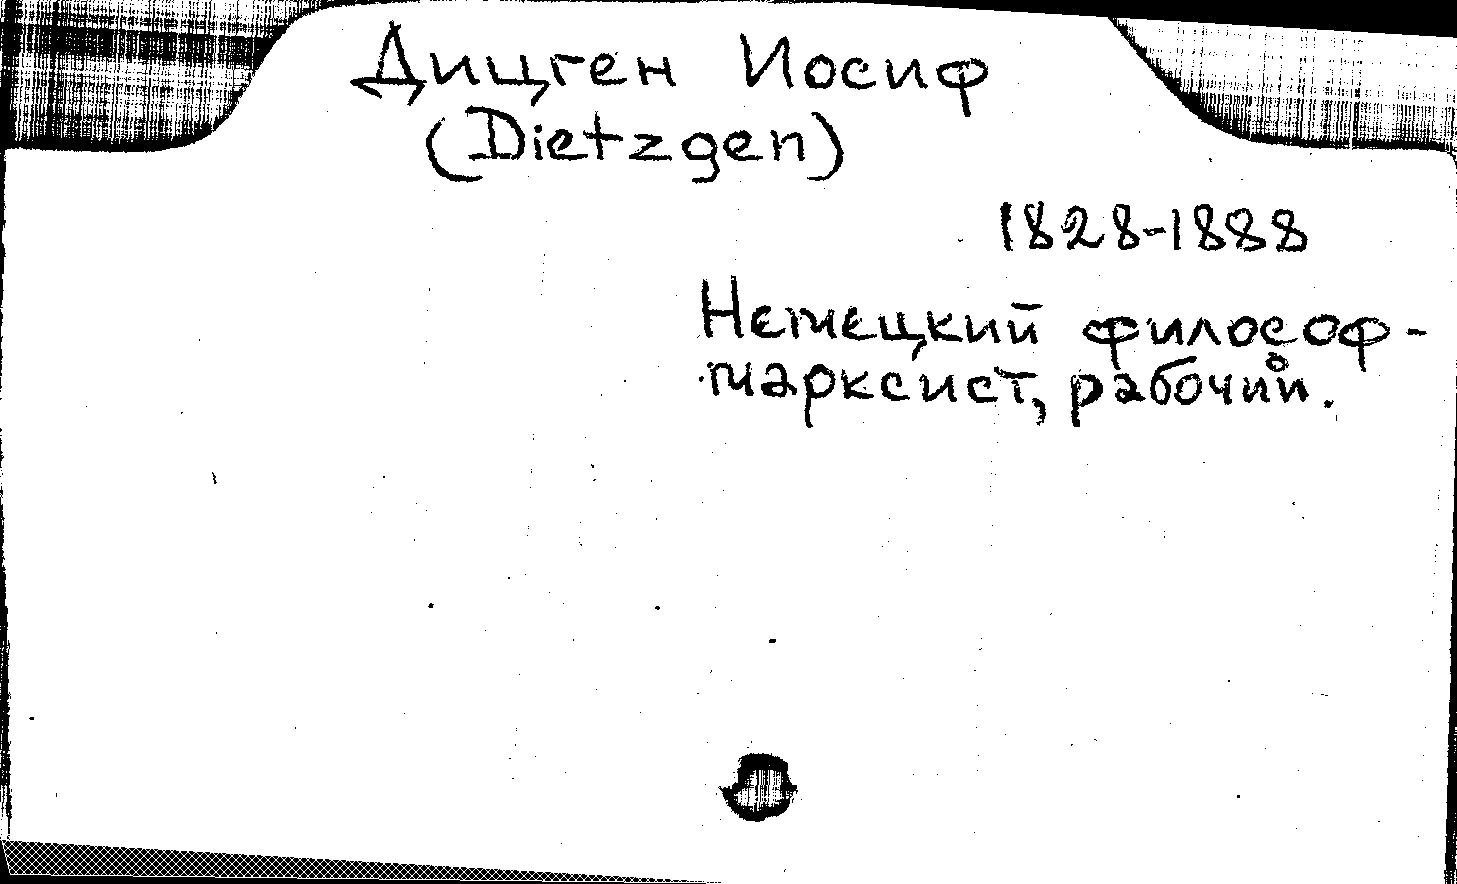 Дицген Иосиф
(Dietzgen)
1828-1888
Немецкий философ-
марксист, рабочий.